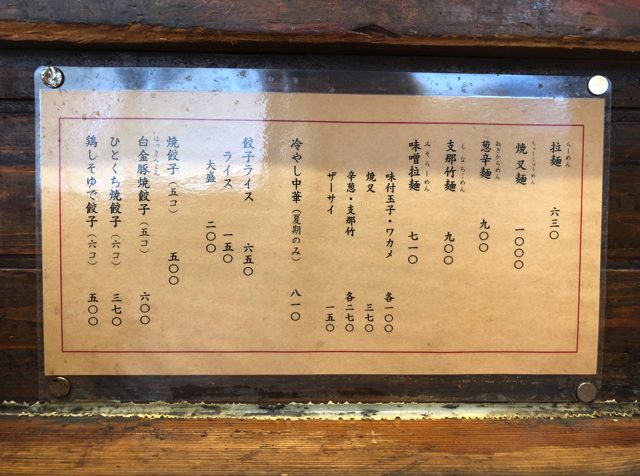 らーめん
拉麺 六三〇
ちゃーしゅーめん
焼叉麺 一〇〇〇
ねぎからめん
葱辛麺 九〇〇
しなちくめん
支那竹麺 九〇〇
みそらーめん
味噌拉麺 七一〇
味付玉子・ワカメ 各一〇〇
焼叉 三七〇
辛葱・支那竹 各二七〇
ザーサイ 一五〇
冷やし中華（夏期のみ） 八一〇
餃子ライス 六五〇
ライス 一五〇
大盛 二〇〇
焼餃子（五コ） 五〇〇
はっきんとん
白金豚焼餃子（五コ） 六〇〇
ひとくち焼餃子（六コ） 三七〇
鶏しそゆで餃子（六コ） 五〇〇